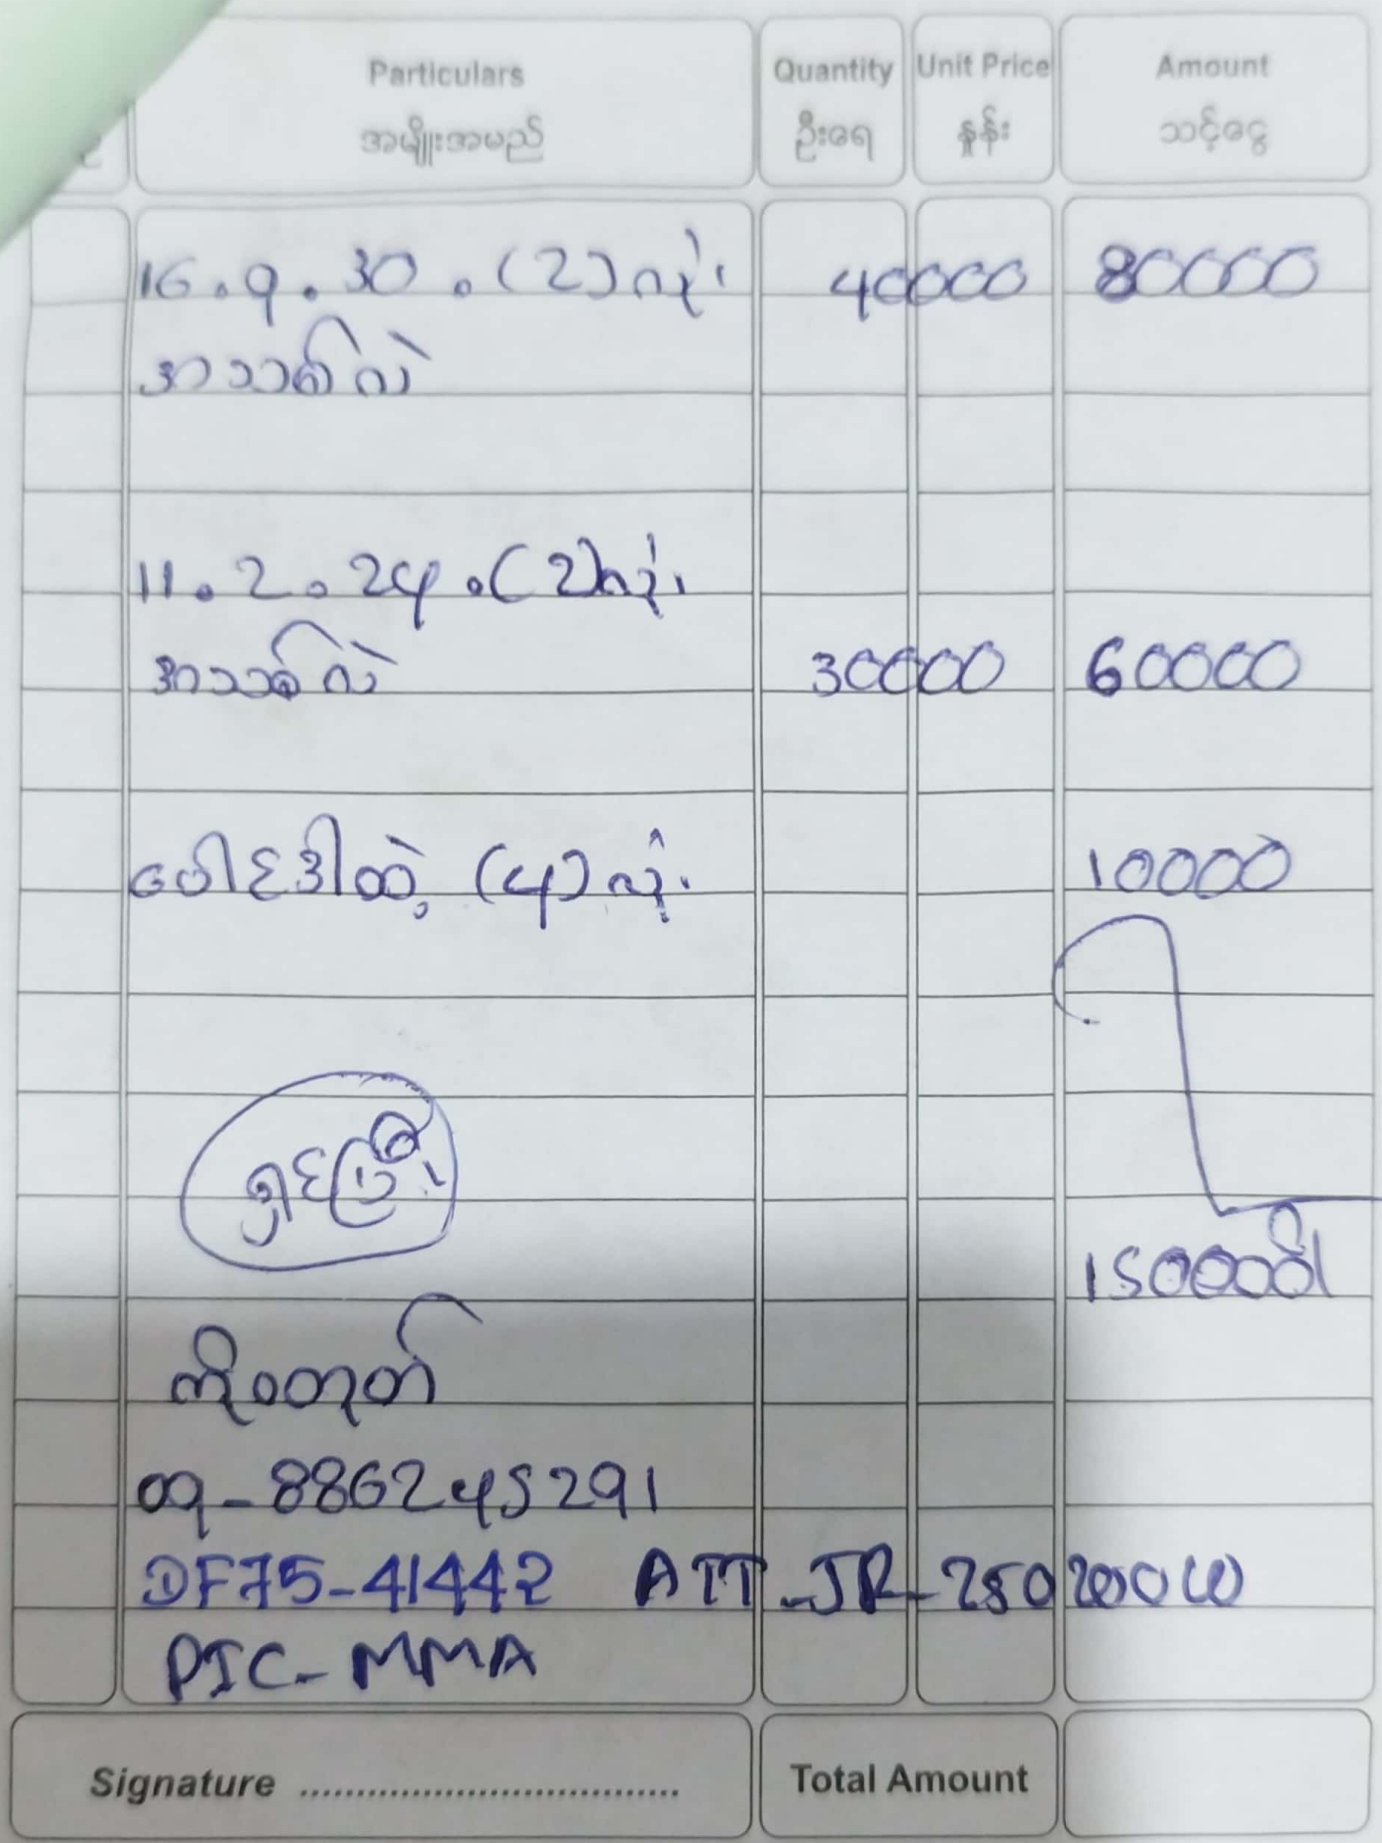 Particulars Quantity Unit Price Amount
အမျိုးအမည် ဦးရေ နှုန်း သင့်ငွေ
16.9.30.(2)လုံး 40000 80000
အသစ်လဲ
11.2.24.(2)လုံး
အသစ်လဲ 30000 60000
ပေါင်ဒါထဲ့ (4)လုံး 10000
ရှင်းပြီး
150000ိ/
ကိုဝတုတ်
09-886245291
DF75-41442 ATT-JR-250200
PIC-MMA
Signature ................................. Total Amount